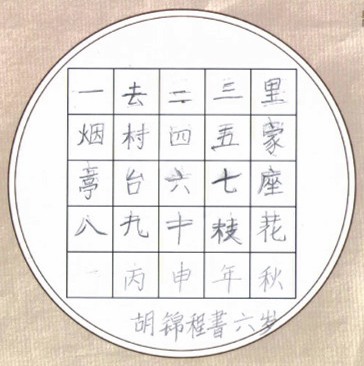 一去二三里
烟村四五家
亭台六七座
八九十枝花
丙申年秋
胡锦程書六岁